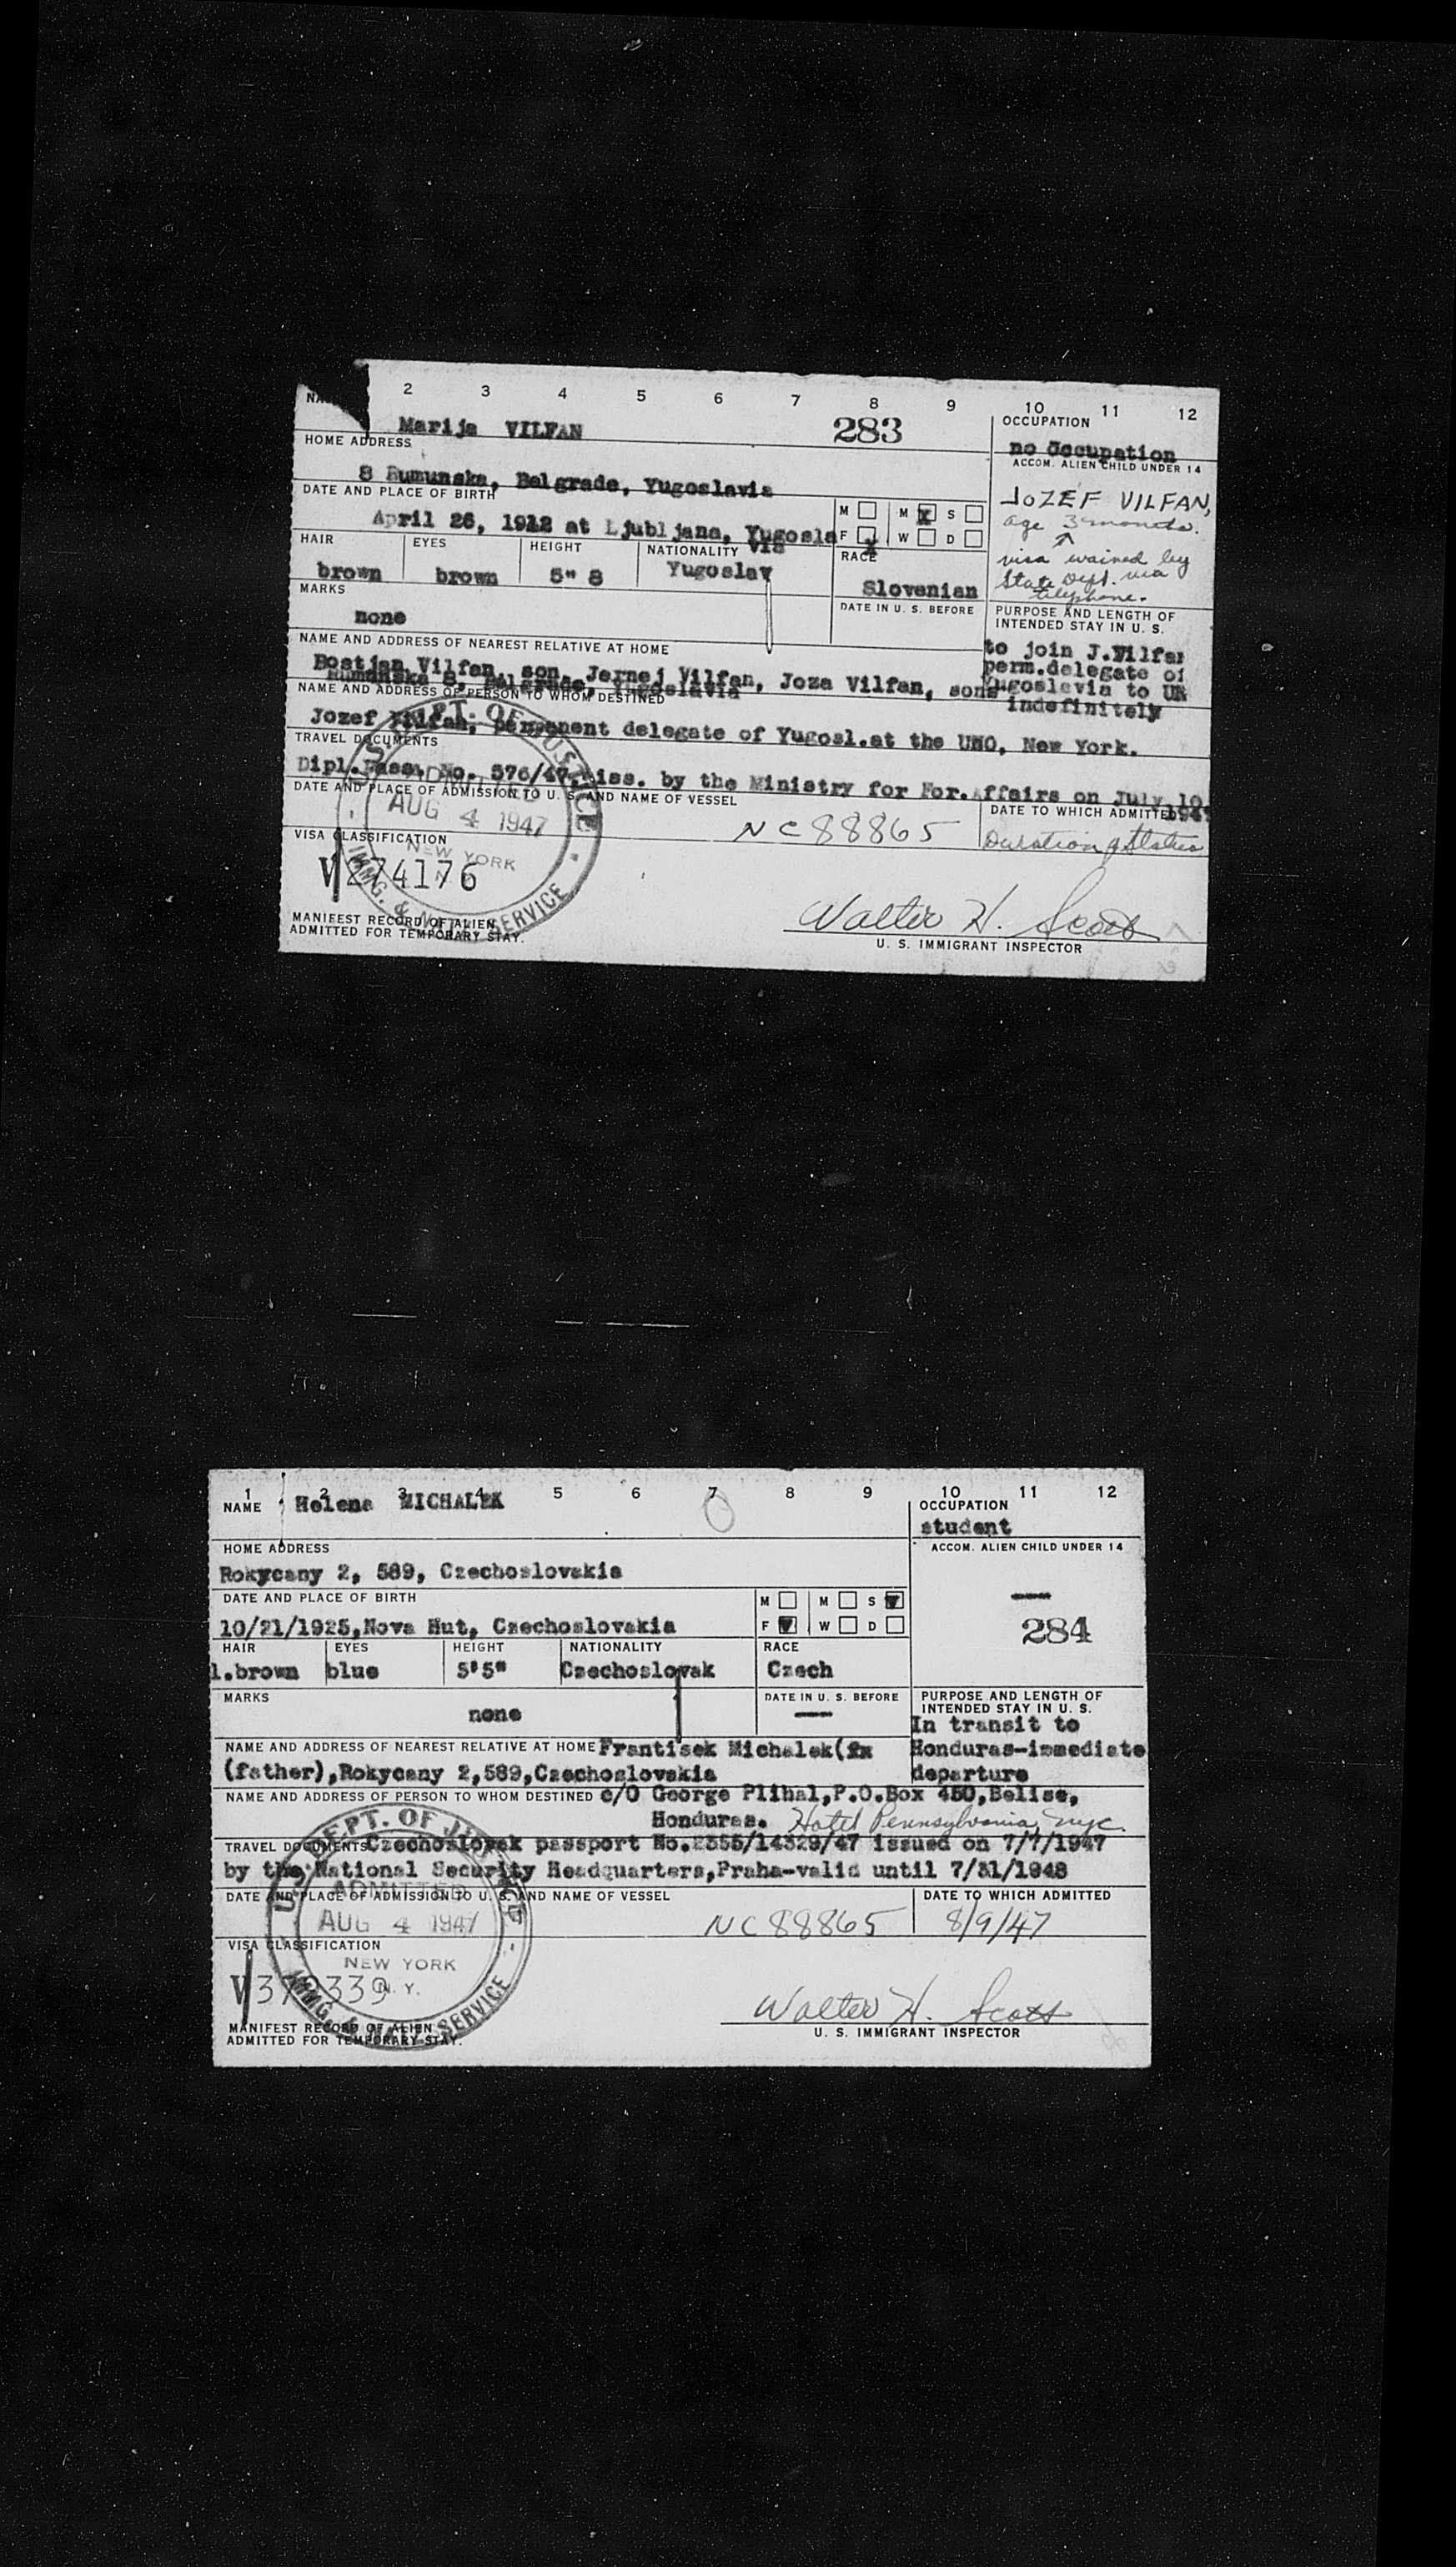 2 3 4 5 6 7 8 9 10 11 12
Marija VILFAN
283
OCCUPATION
no Occupation
HOME ADDRESS
8 Rumunska, Belgrade, Yugoslavia
ACCOM. ALIEN CHILD UNDER 14
JOZEF VILFAN,
age 3 months.
visa waived by
State Dept. via
telephone.
DATE AND PLACE OF BIRTH
April 26, 1912 at Ljubljana, Yugosla
via
M M X S
F X W D
HAIR EYES HEIGHT NATIONALITY RACE
brown brown 5" 8 Yugoslav Slovenian
MARKS
none
DATE IN U. S. BEFORE
PURPOSE AND LENGTH OF
INTENDED STAY IN U. S.
to join J.Vilfan
perm.delegate of
Yugoslavia to UN
indefinitely
NAME AND ADDRESS OF NEAREST RELATIVE AT HOME
Bostjan Vilfan, son, Jernej Vilfan, Joza Vilfan, sons
Rumunska 8, Belgrade, Yugoslavia
NAME AND ADDRESS OF PERSON TO WHOM DESTINED
Jozef Vilfan, permanent delegate of Yugosl.at the UNO, New York.
TRAVEL DOCUMENTS
Dipl.Pass. No. 576/47, iss. by the Ministry for For.Affairs on July 10,
DATE AND PLACE OF ADMISSION TO U. S. AND NAME OF VESSEL
NC 88865
DATE TO WHICH ADMITTED
Duration of Status
U. S. DEPT. OF JUSTICE
ADMITTED
AUG 4 1947
NEW YORK
N. Y.
IMMG. & NATZ. SERVICE
VISA CLASSIFICATION
V 274176
MANIFEST RECORD OF ALIEN
ADMITTED FOR TEMPORARY STAY.
Walter H. Scott
U. S. IMMIGRANT INSPECTOR
1 2 3 4 5 6 7 8 9 10 11 12
NAME Helena MICHALEK
OCCUPATION
student
HOME ADDRESS
Rokycany 2, 589, Czechoslovakia
ACCOM. ALIEN CHILD UNDER 14
284
DATE AND PLACE OF BIRTH
10/21/1925,Nova Hut, Czechoslovakia
M M S
F W D
HAIR EYES HEIGHT NATIONALITY RACE
l.brown blue 5'5" Czechoslovak Czech
MARKS
none
DATE IN U. S. BEFORE
PURPOSE AND LENGTH OF
INTENDED STAY IN U. S.
In transit to
Honduras-immediate
departure
NAME AND ADDRESS OF NEAREST RELATIVE AT HOME Frantisek Michalek(
(father),Rokycany 2,589,Czechoslovakia
NAME AND ADDRESS OF PERSON TO WHOM DESTINED c/o George Plihal,P.O.Box 450,Belise,
Honduras. Hotel Pennsylvania, nyc.
TRAVEL DOCUMENTS Czechoslovak passport No.2355/14329/47 issued on 7/7/1947
by the National Security Headquarters,Praha-valid until 7/31/1948
DATE AND PLACE OF ADMISSION TO U. S. AND NAME OF VESSEL
NC 88865
DATE TO WHICH ADMITTED
8/9/47
U. S. DEPT. OF JUSTICE
ADMITTED
AUG 4 1947
NEW YORK
N. Y.
IMMG. & NATZ. SERVICE
VISA CLASSIFICATION
MANIFEST RECORD OF ALIEN
ADMITTED FOR TEMPORARY STAY.
Walter H. Scott
U. S. IMMIGRANT INSPECTOR